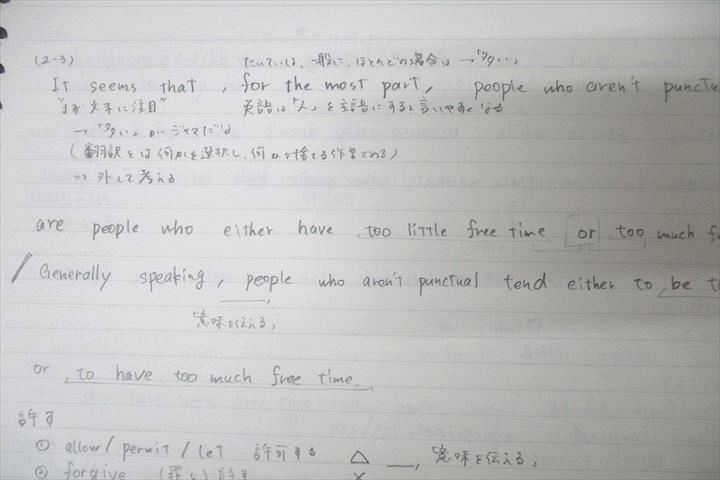 (2-3) たいていは、一般に、ほとんどの場合は →「多い」
It seems that, for the most part, people who aren't punctua
"まず文末に注目" 英語は「人」を主語にすると言いやすくなる
→「多い」がジャマだ
(翻訳とは何かを選択し、何かを捨てる作業である)
⇒ 外して考える
are people who either have too little free time or too much fr
Generally speaking, people who aren't punctual tend either to be t
意味を伝える,
or to have too much free time.
許す
① allow / permit / let 許可する △ 意味を伝える,
② forgive (罪を) 許す ×